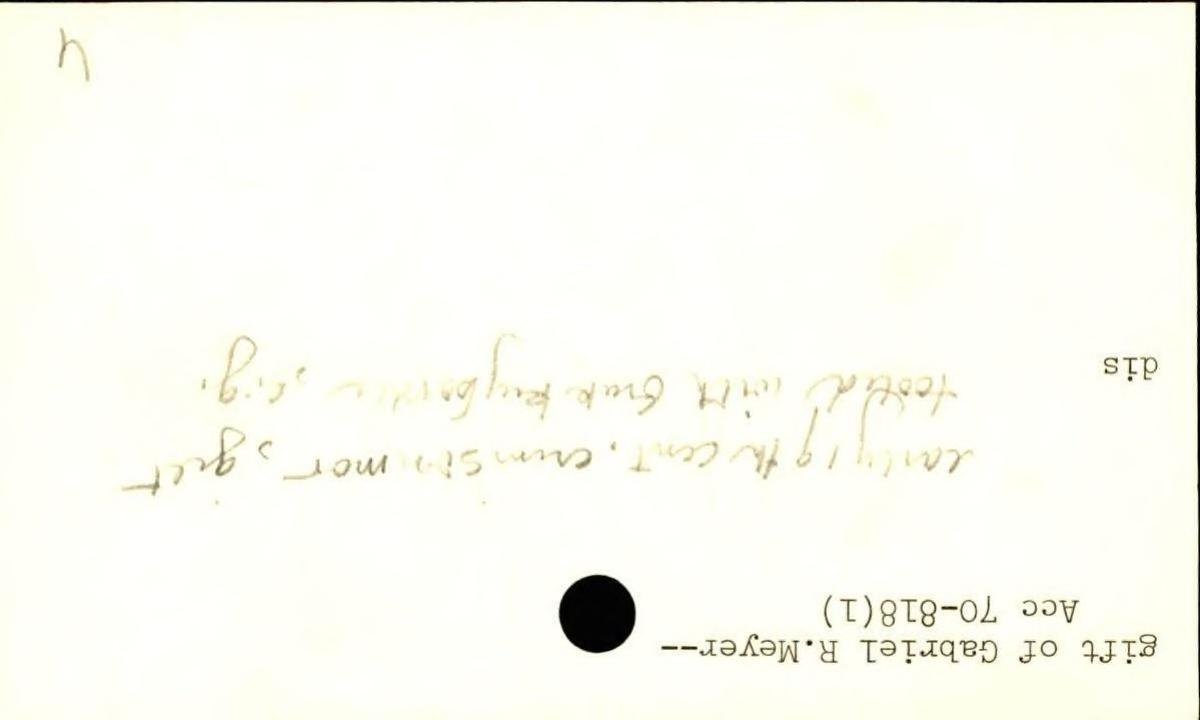 gift of Gabriel R.Meyer--
Acc 70-818(1)
early 19th cent. crimson mor, gilt
tooled with Greek key border, s.g.
dis